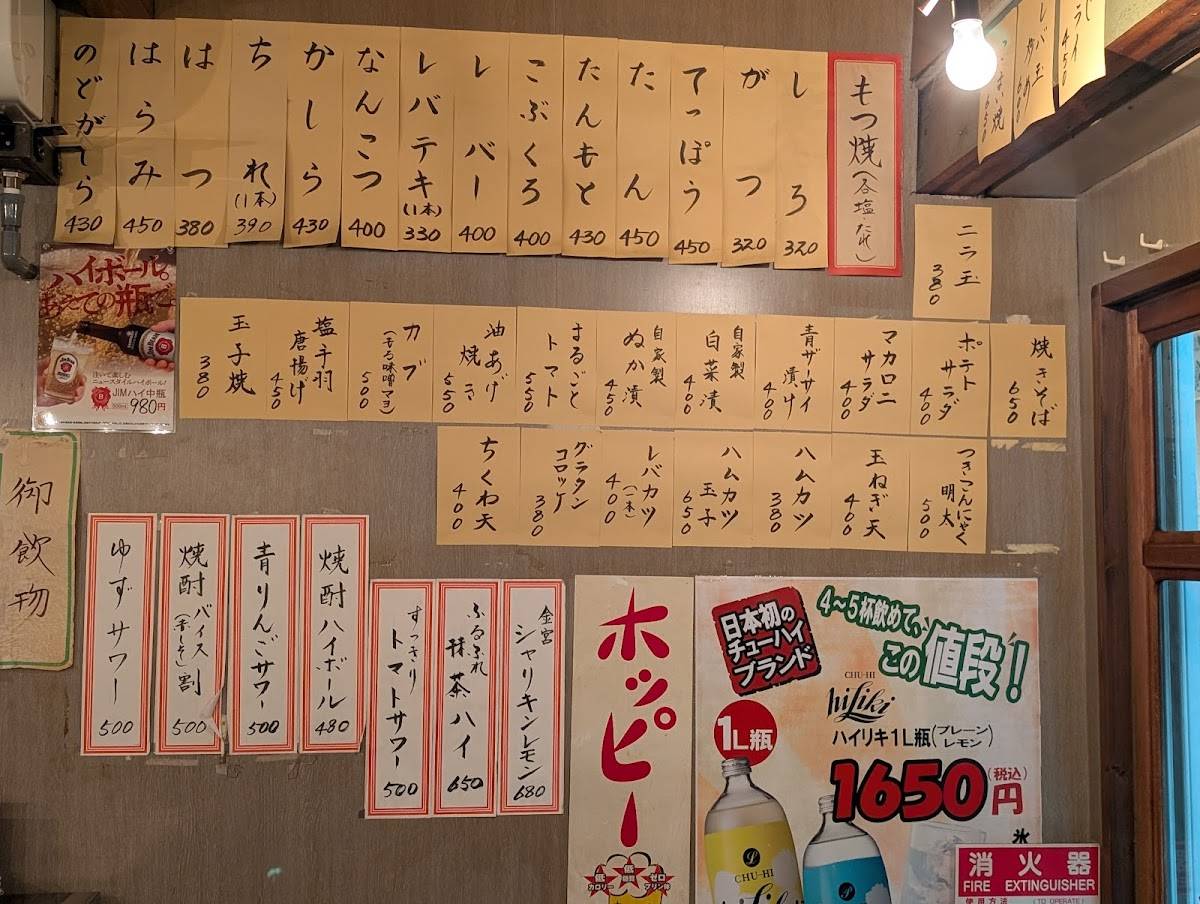 もつ焼(各塩・たれ)
しろ 320
がつ 320
てっぽう 450
たん 450
たんもと 430
こぶくろ 400
レバー 400
レバテキ(1本) 330
なんこつ 400
かしら 430
ちれ(1本) 390
はつ 380
はらみ 450
のどがしら 430
ニラ玉 380
焼きそば 650
ポテト
サラダ 400
マカロニ
サラダ 400
青ザーサイ
漬け 400
自家製
白菜漬 400
自家製
ぬか漬 450
まるごと
トマト 550
油あげ
焼き 550
カブ
(辛る味噌マヨ) 500
塩手羽
唐揚げ 450
玉子焼 380
つきこんにゃく
明太 500
玉ねぎ天 400
ハムカツ 380
ハムカツ
玉子 650
レバカツ
(一本) 400
グラタン
コロッケ 380
ちくわ天 400
ハイボール。
あえての瓶で。
注いで楽しむ
ニュースタイルハイボール!
JIMハイ中瓶
500ml 980円
御飲物
金宮
シャリキンレモン 680
ふるふれ
抹茶ハイ 650
すっきり
トマトサワー 500
焼酎ハイボール 480
青りんごサワー 500
焼酎バイス(赤しそ)割 500
ゆずサワー 500
ホッピー
低カロリー
低糖質
ゼロプリン体
日本初の
チューハイ
ブランド
4〜5杯飲めて、
この値段!
CHU-HI
hiLiki
1L瓶
ハイリキ1L瓶(プレーン レモン)
1650円(税込)
CHU-HI
氷
消火器
FIRE EXTINGUISHER
使用方法 (TO OPERATE)